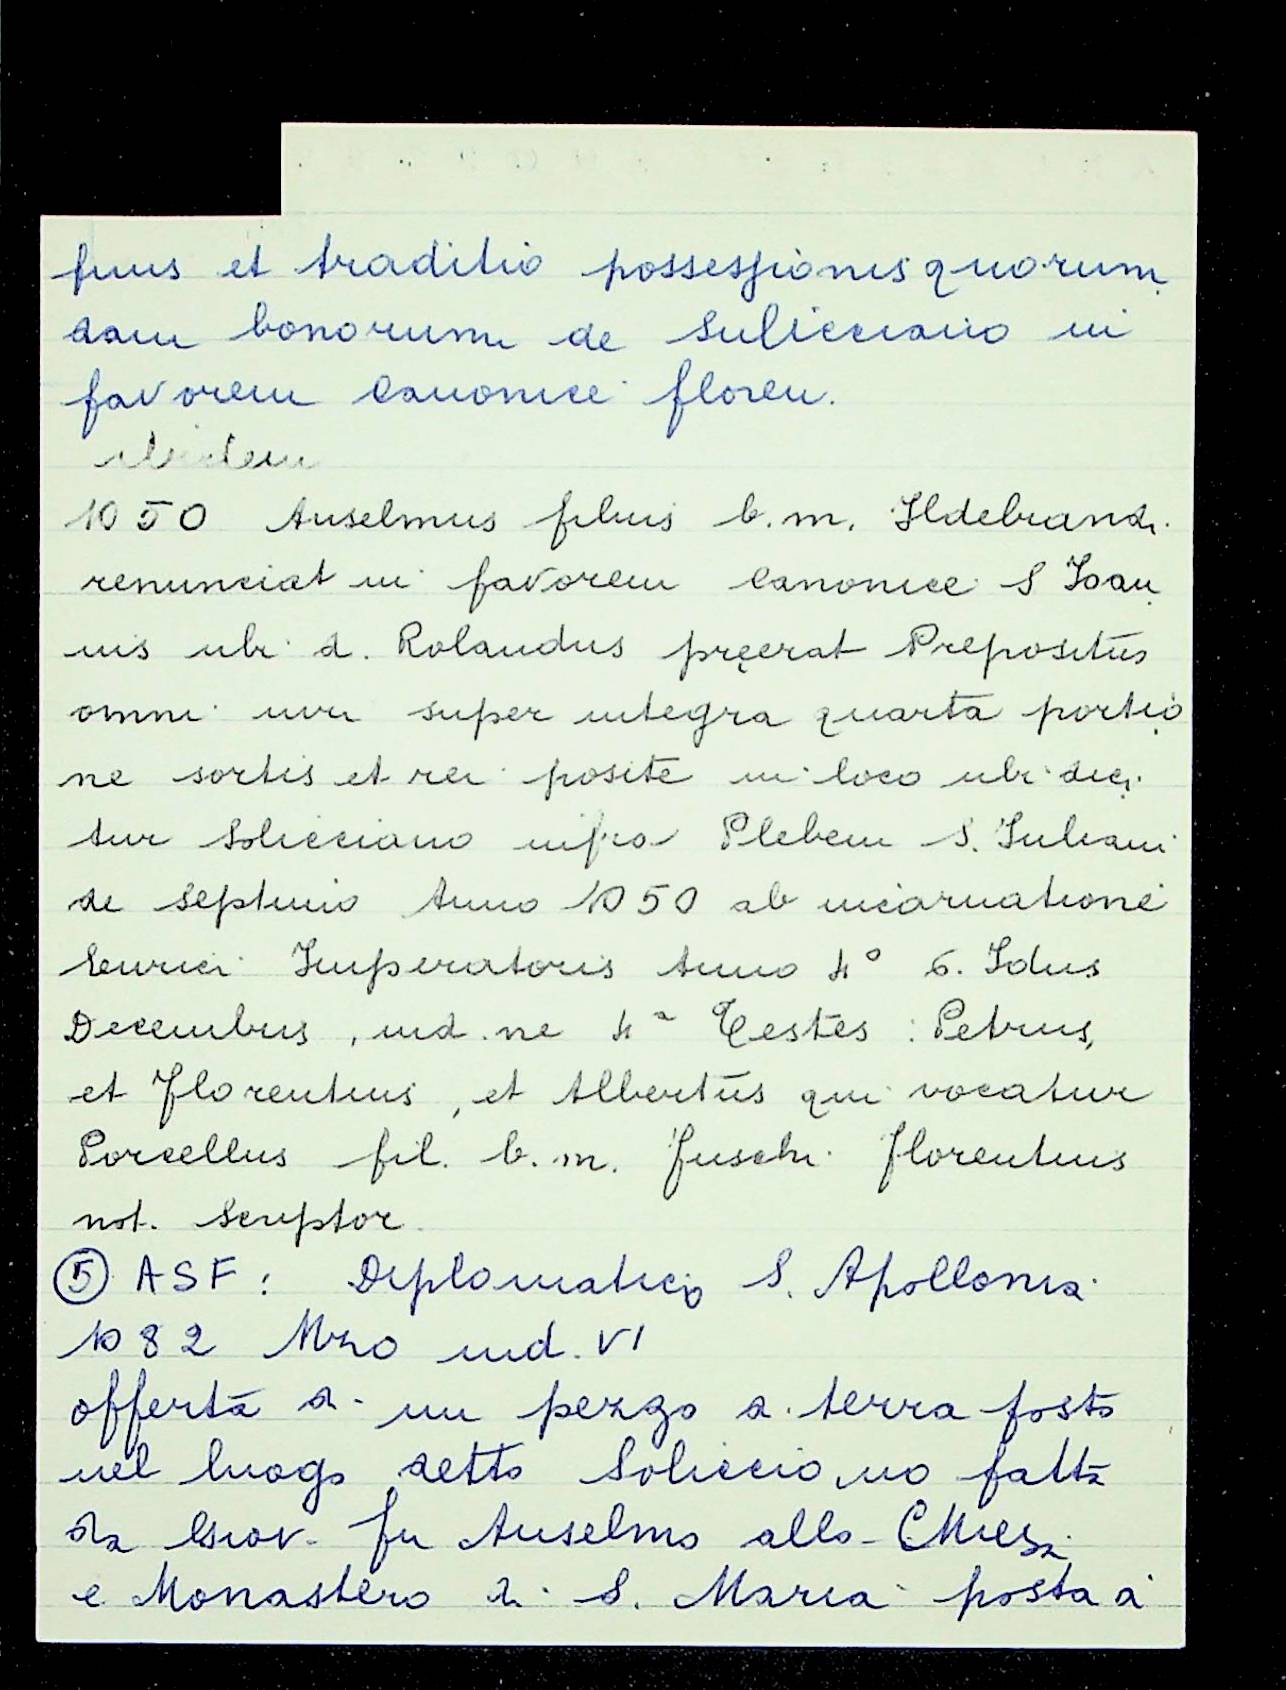 finis et traditio possessionis quorum
dam bonorum de Sulicciano in
favorem Canonice floren.
ibidem
1050 Anselmus filius b.m. Ildebrandi
renunciat in favorem Canonice S Joan
nis ubi d. Rolandus pręerat Prepositus
omni iuri super integra quarta portio
ne sortis et rei posite in loco ubi dici
tur Solicciano infra Plebem S. Juliani
de Septimo Anno 1050 ab incarnatione
Enrici Imperatoris Anno 4° 6. Idus
Decembris, ind.ne 4ª Testes: Petrus,
et Florentius, et Albertus qui vocatur
Porcellus fil. b.m. Fuschi Florentius
not. Scriptor
⑤ ASF: Diplomatico S. Apollonia
1082 Mzo ind. VI
offerta di un pezzo di terra posto
nel luogo detto Solicciano fatta
da Giov. fu Anselmo alla Chiesa
e Monastero di S. Maria posta a